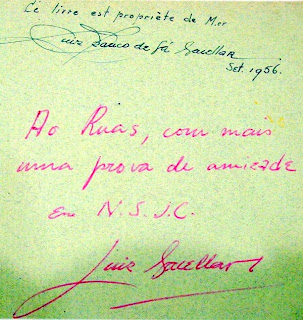 Cé livre est propriète de M.er
Luiz Franco de Sá Bacellar
Set. 1956.
Ao Ruas, com mais
uma prova de amizade
em N. S. J. C.
Luiz Bacellar